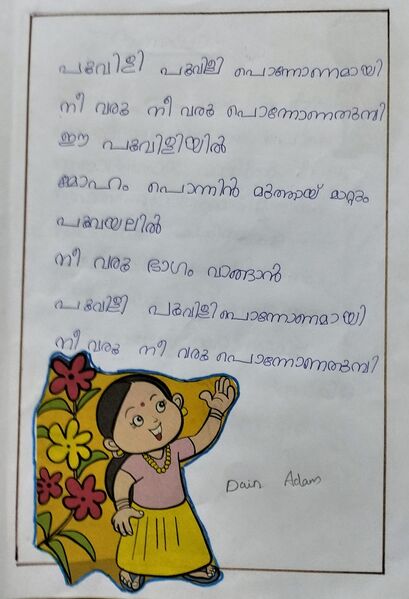 പൂവിളി പൂവിളി പൊന്നോണമായി
നീ വരൂ നീ വരൂ പൊന്നോണതുമ്പി
ഈ പൂവിളിയിൽ
മോഹം പൊന്നിൻ മുത്തായ് മാറ്റും
പൂവയലിൽ
നീ വരൂ ഭാഗം വാങ്ങാൻ
പൂവിളി പൂവിളി പൊന്നോണമായി
നീ വരൂ നീ വരൂ പൊന്നോണതുമ്പി
Dain Adam